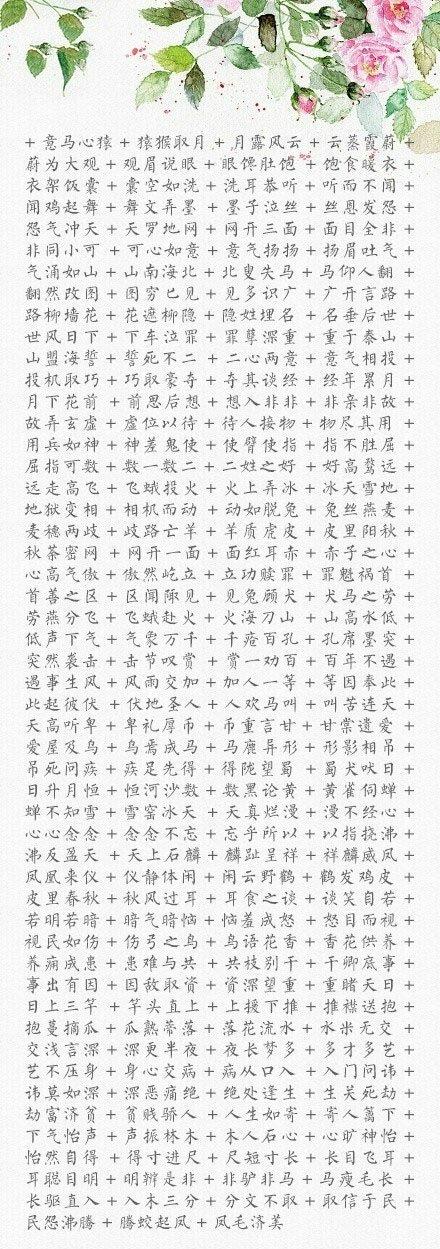 + 意马心猿 + 猿猴取月 + 月露风云 + 云蒸霞蔚 +
蔚为大观 + 观眉说眼 + 眼馋肚饱 + 饱食暖衣 +
衣架饭囊 + 囊空如洗 + 洗耳恭听 + 听而不闻 +
闻鸡起舞 + 舞文弄墨 + 墨子泣丝 + 丝恩发怨 +
怨气冲天 + 天罗地网 + 网开三面 + 面目全非 +
非同小可 + 可心如意 + 意气扬扬 + 扬眉吐气 +
气涌如山 + 山南海北 + 北叟失马 + 马仰人翻 +
翻然改图 + 图穷匕见 + 见多识广 + 广开言路 +
路柳墙花 + 花遮柳隐 + 隐姓埋名 + 名垂后世 +
世风日下 + 下车泣罪 + 罪孽深重 + 重于泰山 +
山盟海誓 + 誓死不二 + 二心两意 + 意气相投 +
投机取巧 + 巧取豪夺 + 夺其谈经 + 经年累月 +
月下花前 + 前思后想 + 想入非非 + 非亲非故 +
故弄玄虚 + 虚位以待 + 待人接物 + 物尽其用 +
用兵如神 + 神差鬼使 + 使臂使指 + 指不胜屈 +
屈指可数 + 数一数二 + 二姓之好 + 好高骛远 +
远走高飞 + 飞蛾投火 + 火上弄冰 + 冰天雪地 +
地狱变相 + 相机而动 + 动如脱兔 + 兔丝燕麦 +
麦穗两歧 + 歧路亡羊 + 羊质虎皮 + 皮里阳秋 +
秋荼密网 + 网开一面 + 面红耳赤 + 赤子之心 +
心高气傲 + 傲然屹立 + 立功赎罪 + 罪魁祸首 +
首善之区 + 区闻陬见 + 见兔顾犬 + 犬马之劳 +
劳燕分飞 + 飞蛾赴火 + 火海刀山 + 山高水低 +
低声下气 + 气象万千 + 千疮百孔 + 孔席墨突 +
突然袭击 + 击节叹赏 + 赏一劝百 + 百年不遇 +
遇事生风 + 风雨交加 + 加人一等 + 等因奉此 +
此起彼伏 + 伏地圣人 + 人欢马叫 + 叫苦连天 +
天高听卑 + 卑礼厚币 + 币重言甘 + 甘棠遗爱 +
爱屋及乌 + 乌焉成马 + 马鹿异形 + 形影相吊 +
吊死问疾 + 疾足先得 + 得陇望蜀 + 蜀犬吠日 +
日升月恒 + 恒河沙数 + 数黑论黄 + 黄雀伺蝉 +
蝉不知雪 + 雪窑冰天 + 天真烂漫 + 漫不经心 +
心心念念 + 念念不忘 + 忘乎所以 + 以指挠沸 +
沸反盈天 + 天上石麟 + 麟趾呈祥 + 祥麟威凤 +
凤凰来仪 + 仪静体闲 + 闲云野鹤 + 鹤发鸡皮 +
皮里春秋 + 秋风过耳 + 耳食之谈 + 谈笑自若 +
若明若暗 + 暗气暗恼 + 恼羞成怒 + 怒目而视 +
视民如伤 + 伤弓之鸟 + 鸟语花香 + 香花供养 +
养痈成患 + 患难与共 + 共枝别干 + 干卿底事 +
事出有因 + 因敌取资 + 资深望重 + 重睹天日 +
日上三竿 + 竿头直上 + 上援下推 + 推襟送抱 +
抱蔓摘瓜 + 瓜熟蒂落 + 落花流水 + 水米无交 +
交浅言深 + 深更半夜 + 夜长梦多 + 多才多艺 +
艺不压身 + 身心交病 + 病从口入 + 入门问讳 +
讳莫如深 + 深恶痛绝 + 绝处逢生 + 生关死劫 +
劫富济贫 + 贫贱骄人 + 人生如寄 + 寄人篱下 +
下气怡声 + 声振林木 + 木人石心 + 心旷神怡 +
怡然自得 + 得寸进尺 + 尺短寸长 + 长目飞耳 +
耳聪目明 + 明辨是非 + 非驴非马 + 马瘦毛长 +
长驱直入 + 入木三分 + 分文不取 + 取信于民 +
民怨沸腾 + 腾蛟起凤 + 凤毛济美